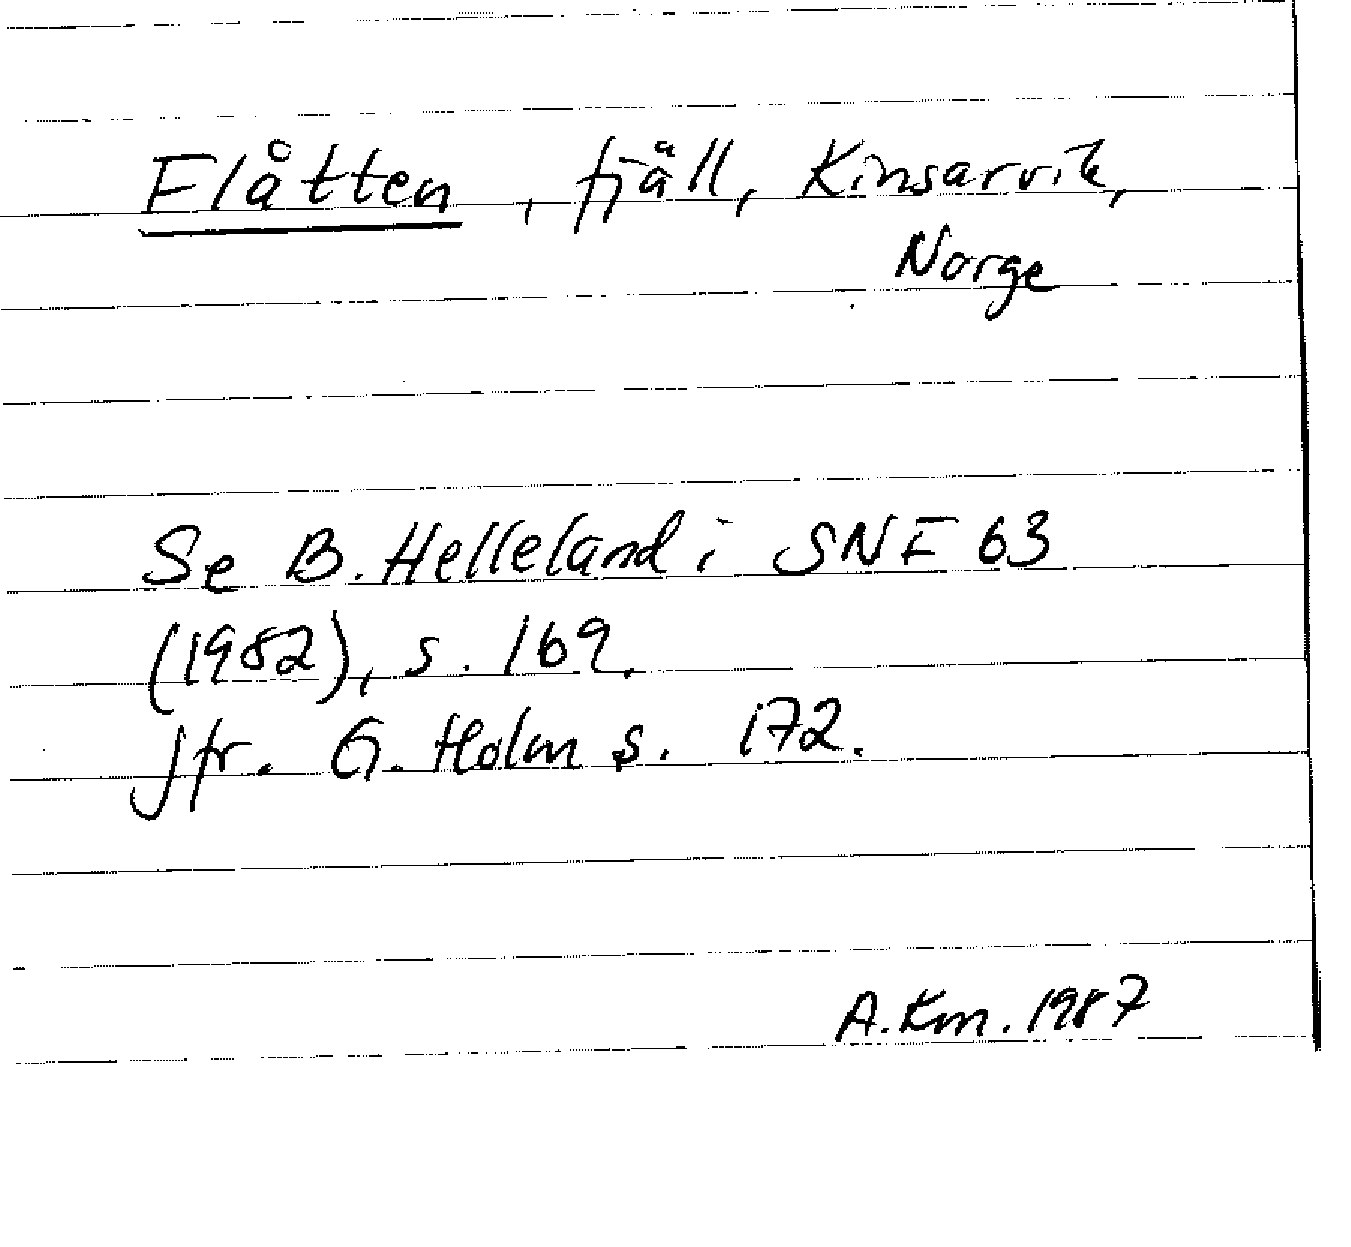 Flåtten, fjäll, Kinsarvik,
Norge
Se B. Helleland i SNF 63
(1982), s. 169.
Jfr. G. Holm s. 172.
A.Km. 1987